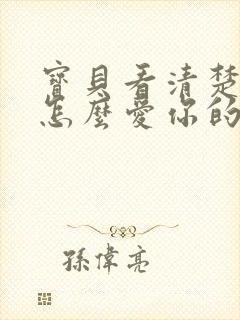 寶貝看清楚
怎麼愛你的
孫偉亮